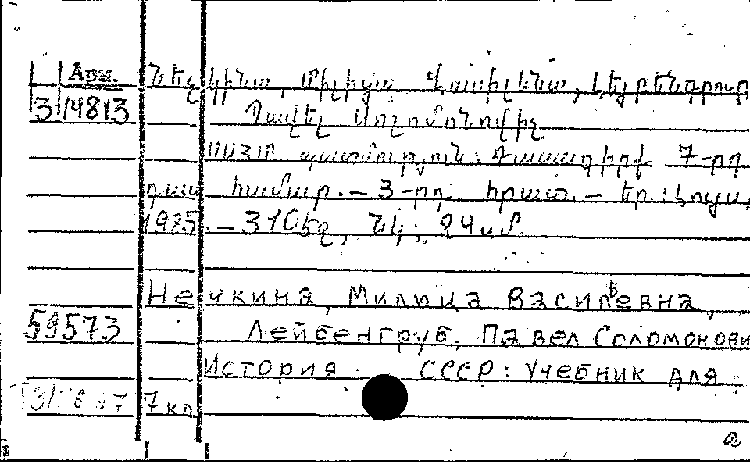 Арм. Նեչկինա, Միլիցա Վասիլևնա, Լեյբենգրուբ
3 14813 Պավել Սոլոմոնովիչ
ՍՍՀՄ պատմություն: Դասագիրք 7-րդ
դաս համար. — 3-րդ հրատ. — Եր.: Լույս,
1985. — 310 էջ, նկ.; 24 սմ.
Нечкина, Милица Василевна,
59573 Лейбенгруб, Павел Соломонови
История СССР: Учебник для
7 кл
а